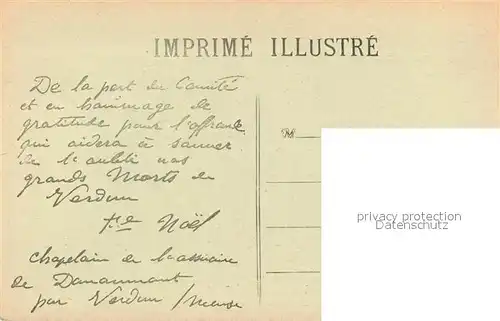 IMPRIMÉ ILLUSTRÉ
De la part du Comité
et en hommage de
gratitude pour l'offrande
qui aidera à sauver
de l'oubli nos
grands Morts de
Verdun
Noël
chapelain de l'ossuaire
de Douaumont
par Verdun / Meuse
M
privacy protection
Datenschutz